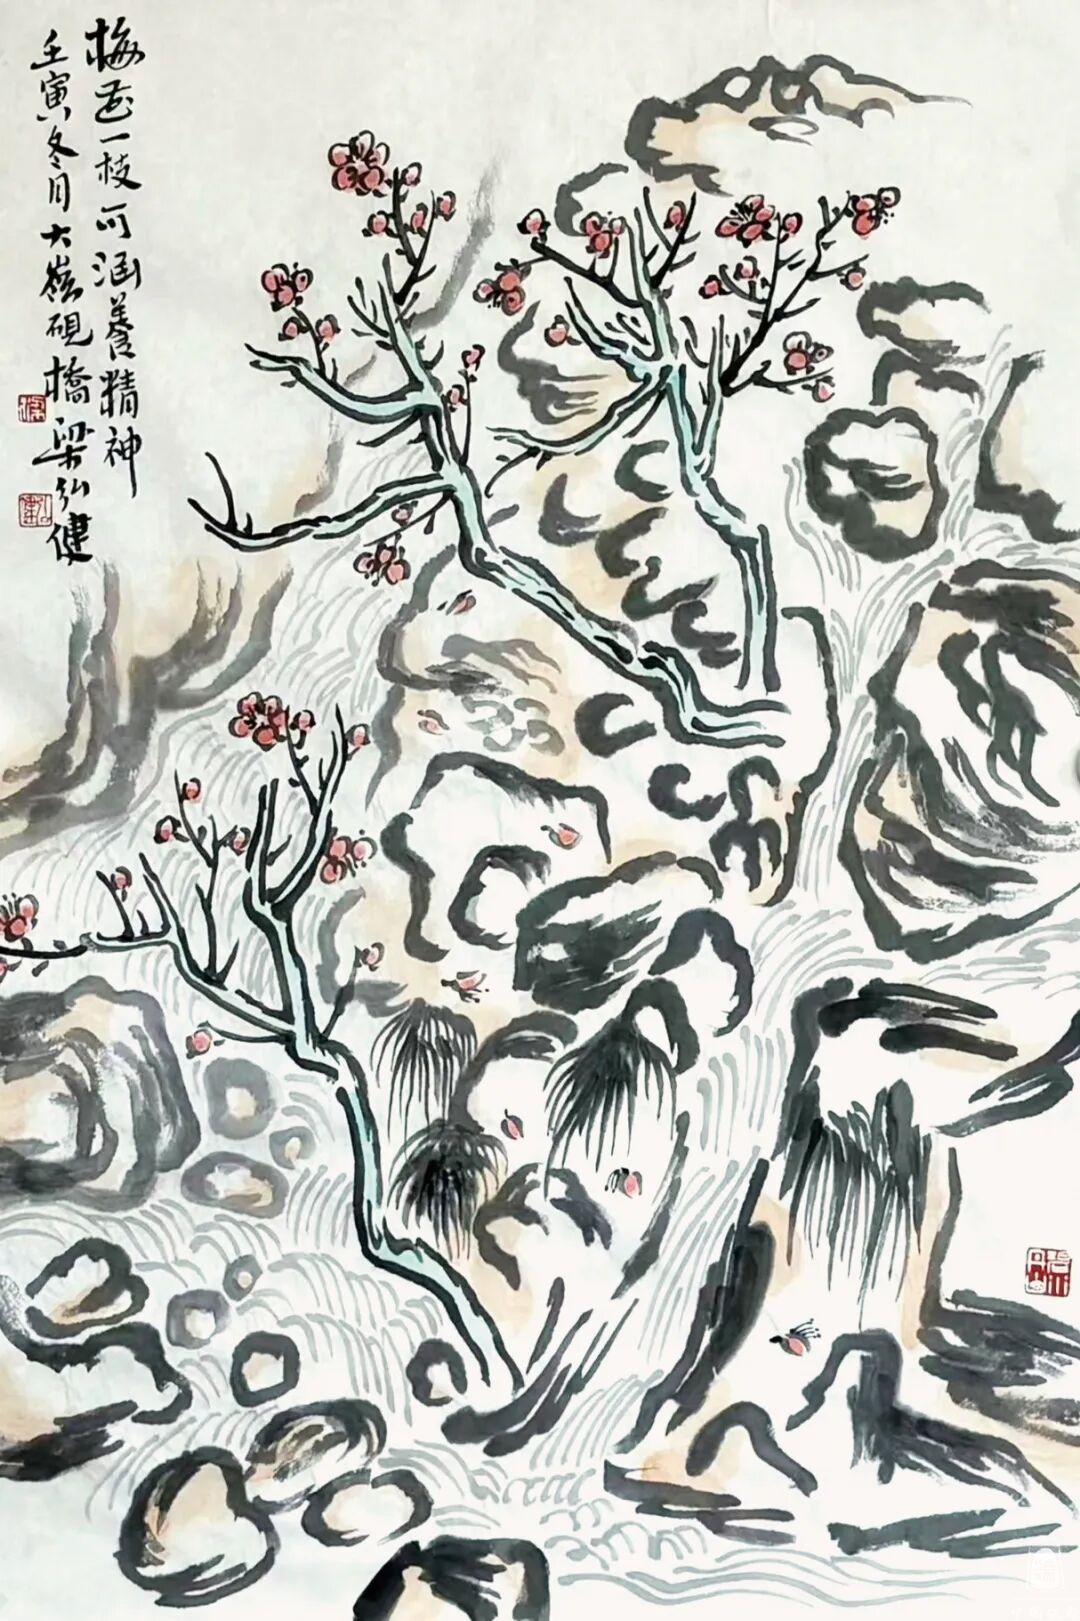 梅花一枝可涵養精神
壬寅冬月大嶺硯橋梁弘健